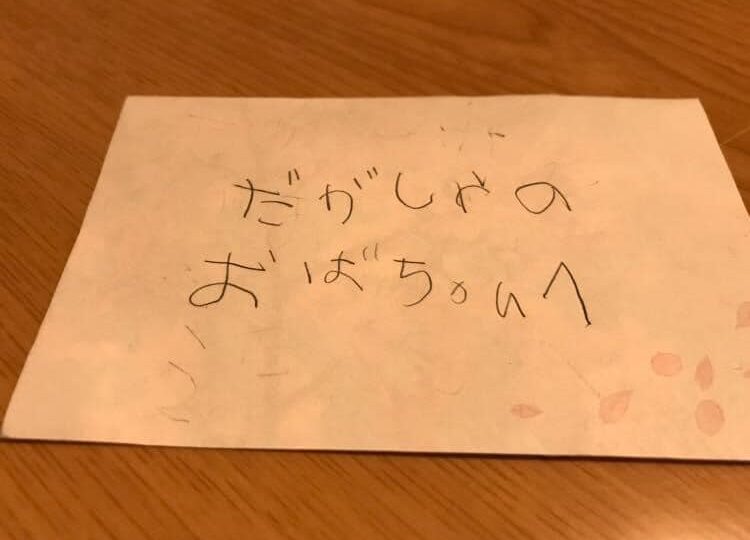 だがしやの
おばちゃんへ